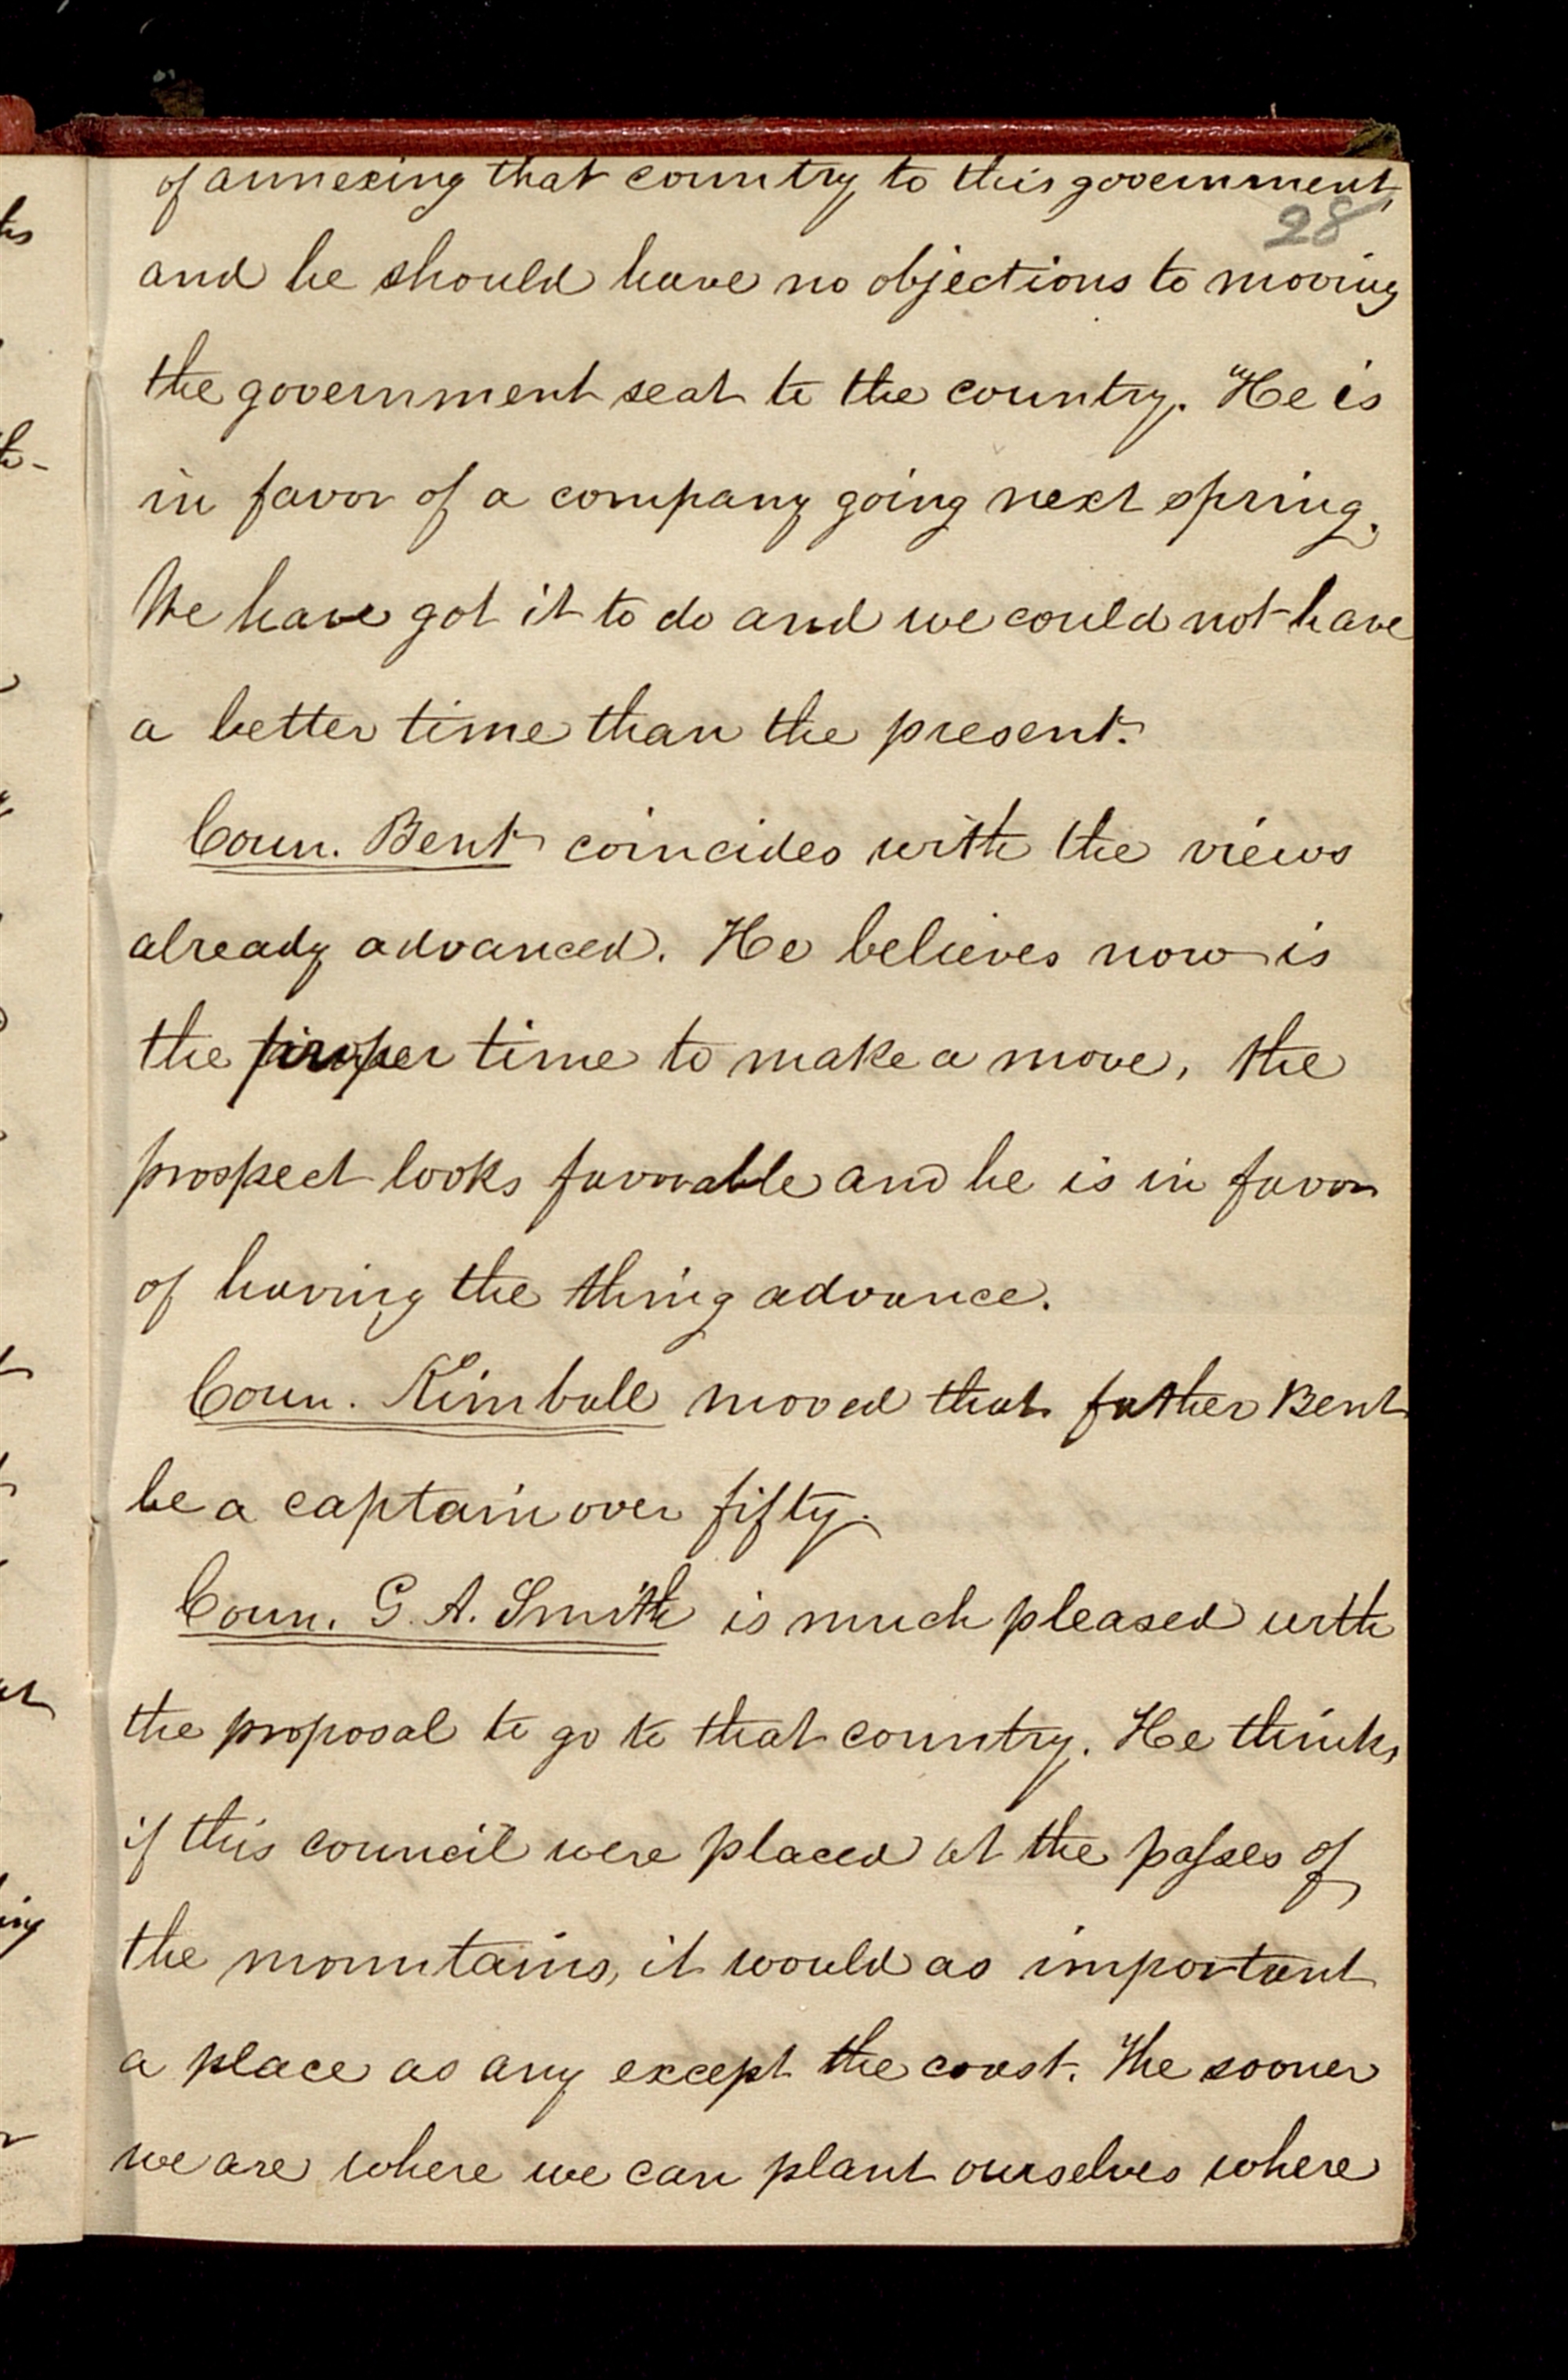 of annexing that country to this government,
28
and he should have no objections to moving
the government seat to the country. He is
in favor of a company going next spring.
We have got it to do and we could not have
a better time than the present.
Coun. Bent coincides with the views
already advanced. He believes now is
the proper time to make a move, the
prospect looks favorable and he is in favor
of having the thing advance.
Coun. Kimball moved that father Bent
be a captain over fifty.
Coun. G. A. Smith is much pleased with
the proposal to go to that country. He thinks
if this council were placed at the passes of
the mountains, it would as important
a place as any except the coast. The sooner
we are where we can plant ourselves where